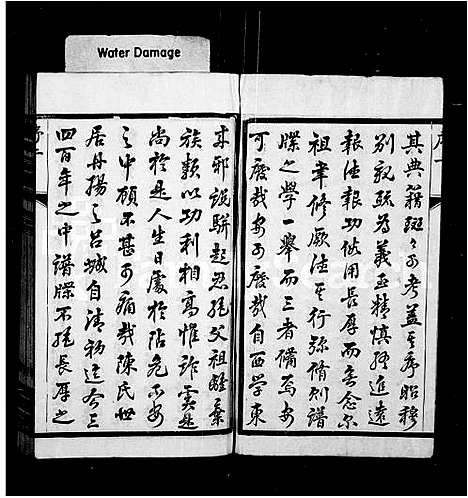 Water Damage
序一
其典籍斑斑可考蓋其序昭穆
別親疏為義至精慎終進遠
報法報功俶用長厚而無念尔
祖聿修厥法其行弥脩則譜
牒之學一舉而三者備焉安
可廢哉安可廢哉自西學東
来邪說駢起忽視父祖離棄
族類以功利相高惟詐虞是
尚於是人生日處於阽危不安
之中顧不甚可痛哉陳氏世
居丹揚之呂城自清初迄今三
四百年之中譜牒不絕長厚之
序一